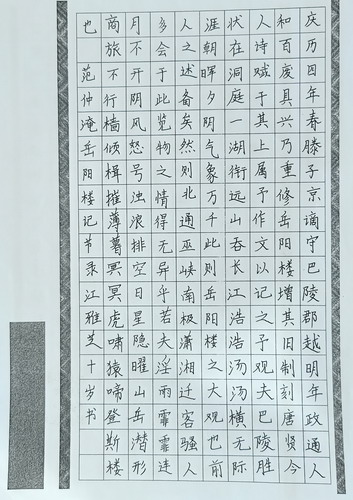 庆历四年春滕子京谪守巴陵郡越明年政通人
和百废具兴乃重修岳阳楼增其旧制刻唐贤今
人诗赋于其上属予作文以记之予观夫巴陵胜
状在洞庭一湖衔远山吞长江浩浩汤汤横无际
涯朝晖夕阴气象万千此则岳阳楼之大观也前
人之述备矣然则北通巫峡南极潇湘迁客骚人
多会于此览物之情得无异乎若夫淫雨霏霏连
月不开阴风怒号浊浪排空日星隐曜山岳潜形
商旅不行樯倾楫摧薄暮冥冥虎啸猿啼登斯楼
也 范仲淹岳阳楼记节录江雅芝十岁书